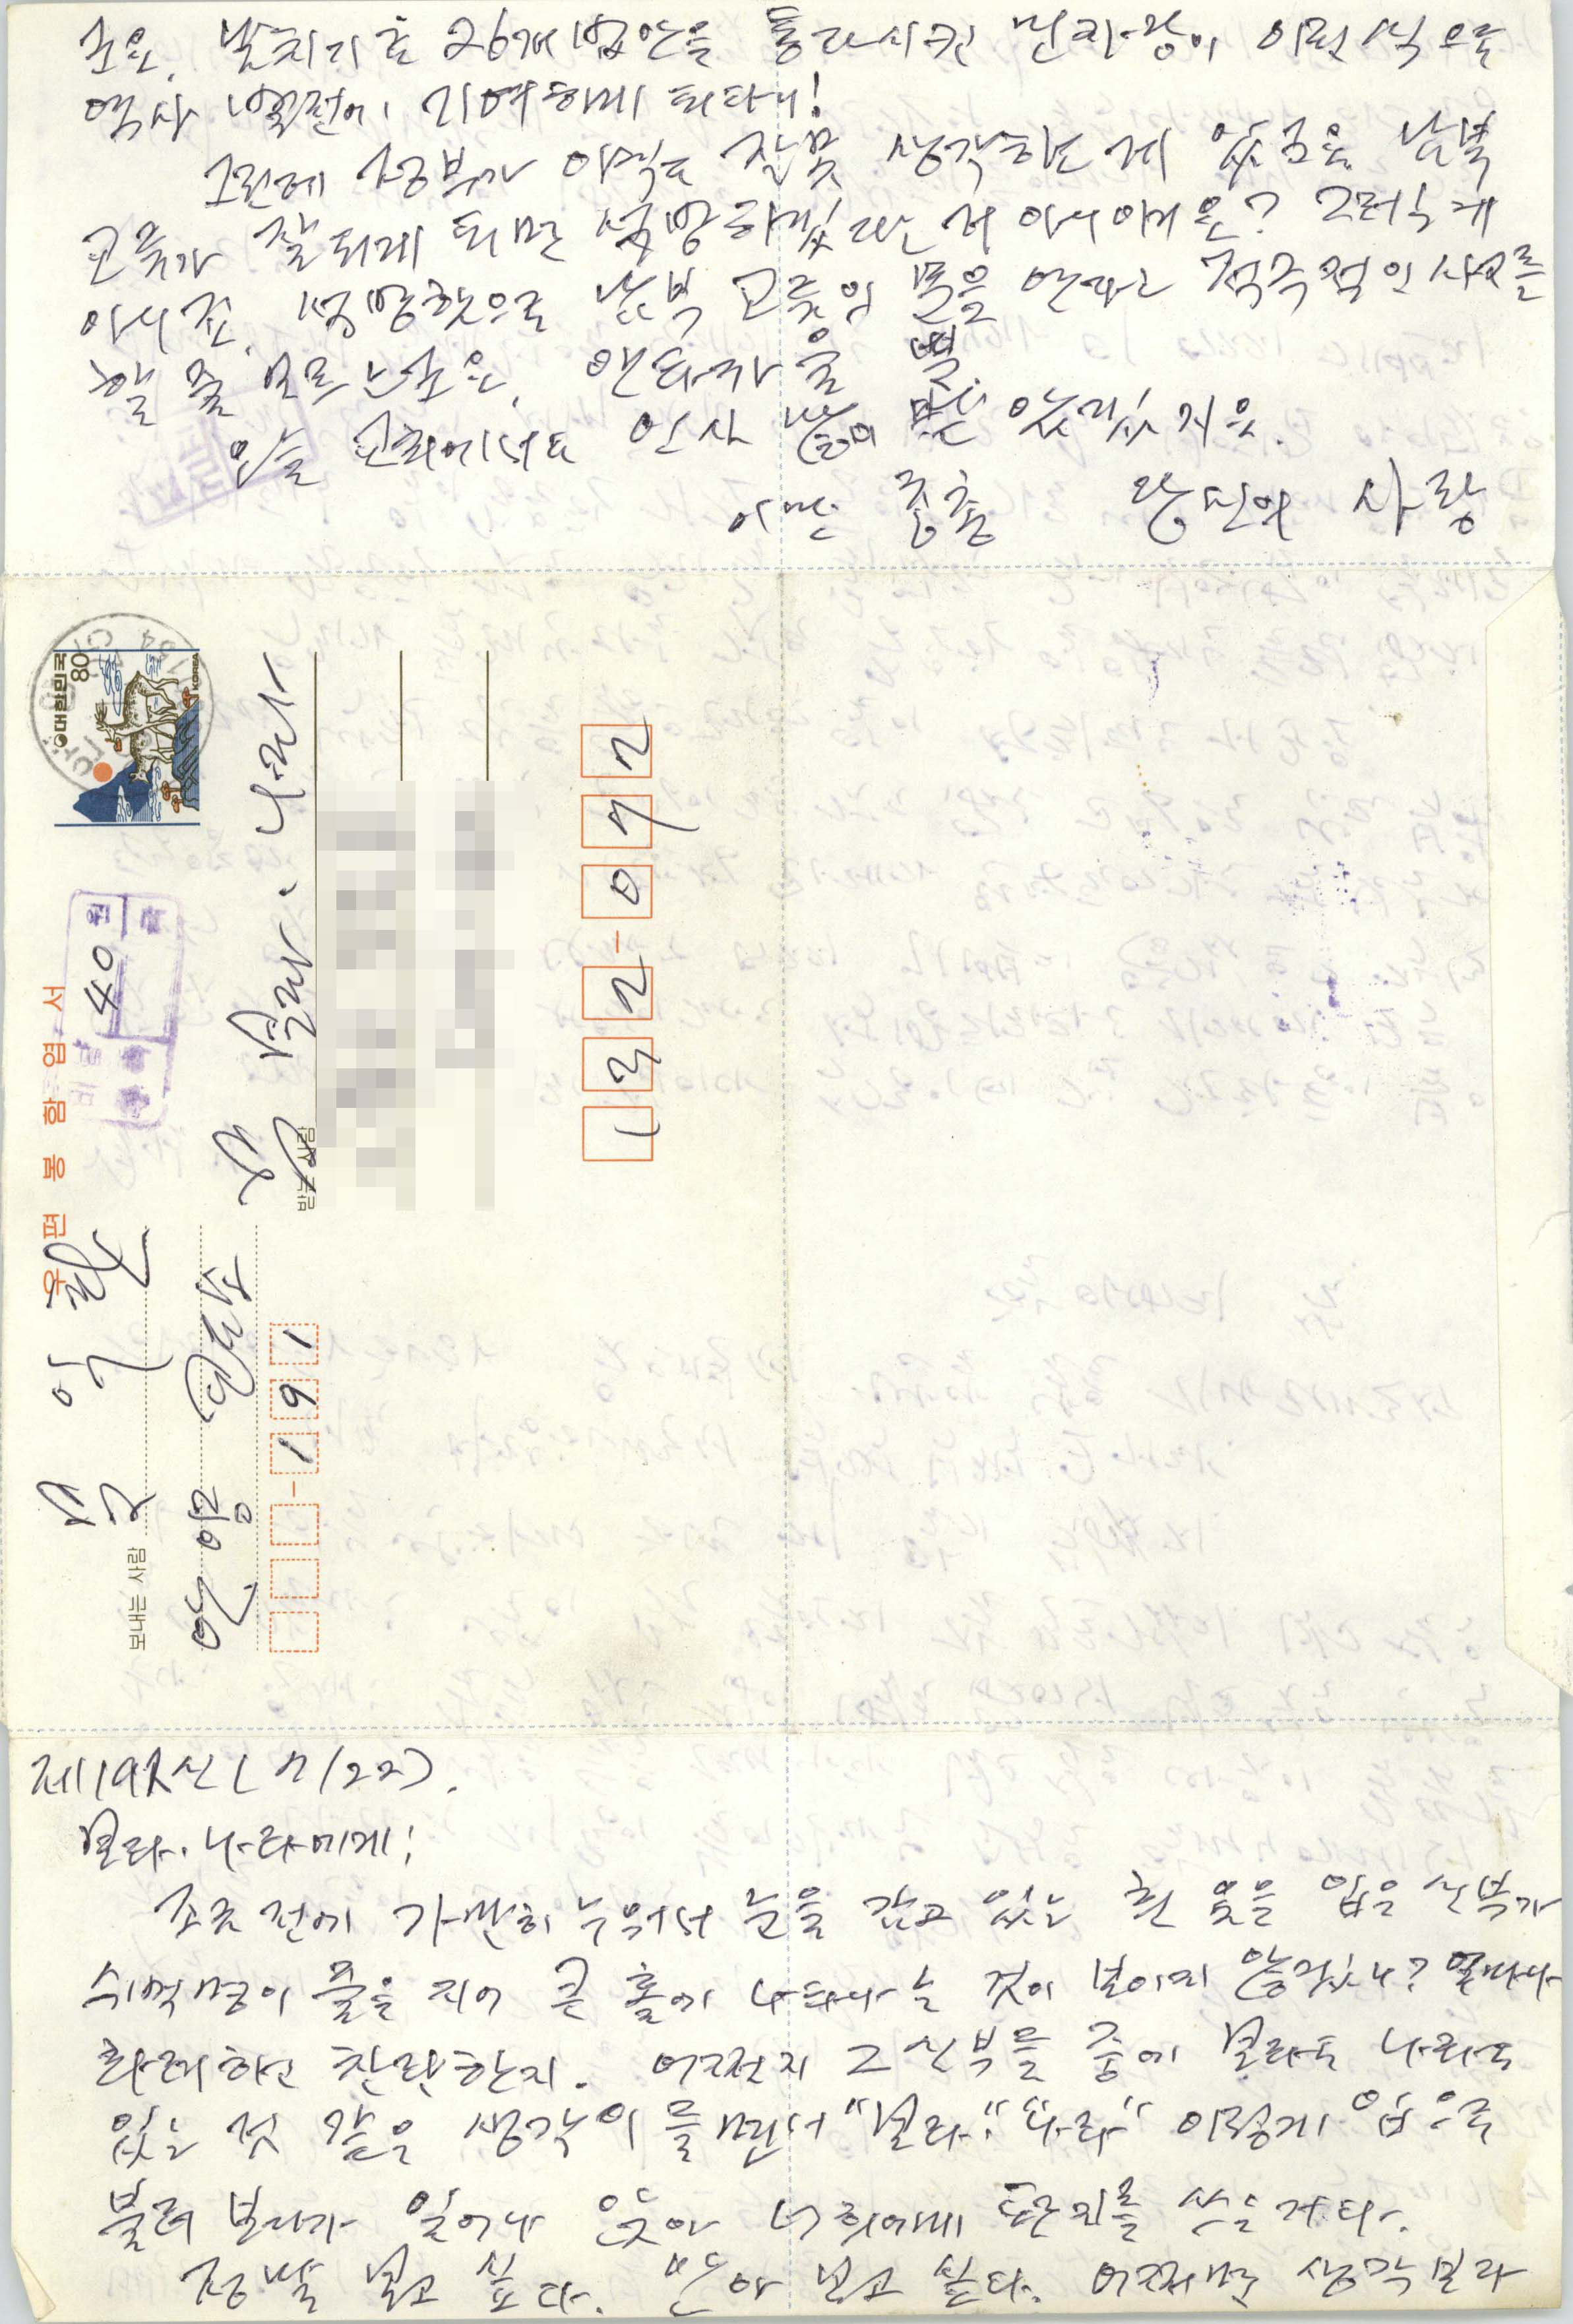 군요. 날치기로 26개 법안을 통과시킨 민자당이 이런 식으로
역사 발전에 기여하게 되다니!
그런데 정부가 아직도 잘못 생각하는 게 있군요. 남북
교류가 잘 되게 되면 설명하겠다는 거 아니어요? 그러는 게
아니죠. 설명함으로 남북 교류의 문을 연다는 적극적인 사고를
할 줄 모르는군요. 안타까울 뿐.
오늘 교회에서도 인사 많이 받았겠지요.
이만 총총 당신의 사랑
대한민국 80
KOREA
40 원
우편봉함엽서
보내는 사람
문 익 환
안양 교도소
1 9 1
받는 사람
문 보라, 나라
1 3 2 - 0 7 2
제19신 (7/22).
보라, 나라에게!
조금 전에 가만히 누워서 눈을 감고 있는 흰 옷을 입은 신부가
수백명이 줄을 지어 큰 홀에 나타나는 것이 보이지 않겠니? 얼마나
화려하고 찬란한지. 어쩐지 그 신부들 중에 보라도 나라도
있는 것 같은 생각이 들면서 "보라," "나라" 이렇게 입으로
불러 보다가 일어나 앉아 너희에게 편지를 쓰는 거다.
정말 보고 싶다. 안아 보고 싶다. 어쩌면 생각보다